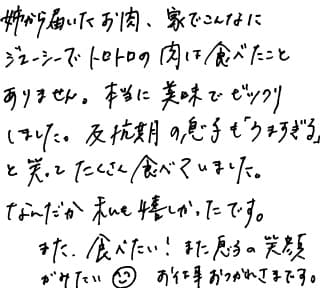 姉から届いたお肉、家でこんなに
ジューシーでトロトロの肉は食べたこと
ありません。本当に美味でビックリ
しました。反抗期の息子も「うますぎる」
と笑ってたくさん食べていました。
なんだか私も嬉しかったです。
また、食べたい！また息子の笑顔
がみたい☺ お仕事おつかれさまです。